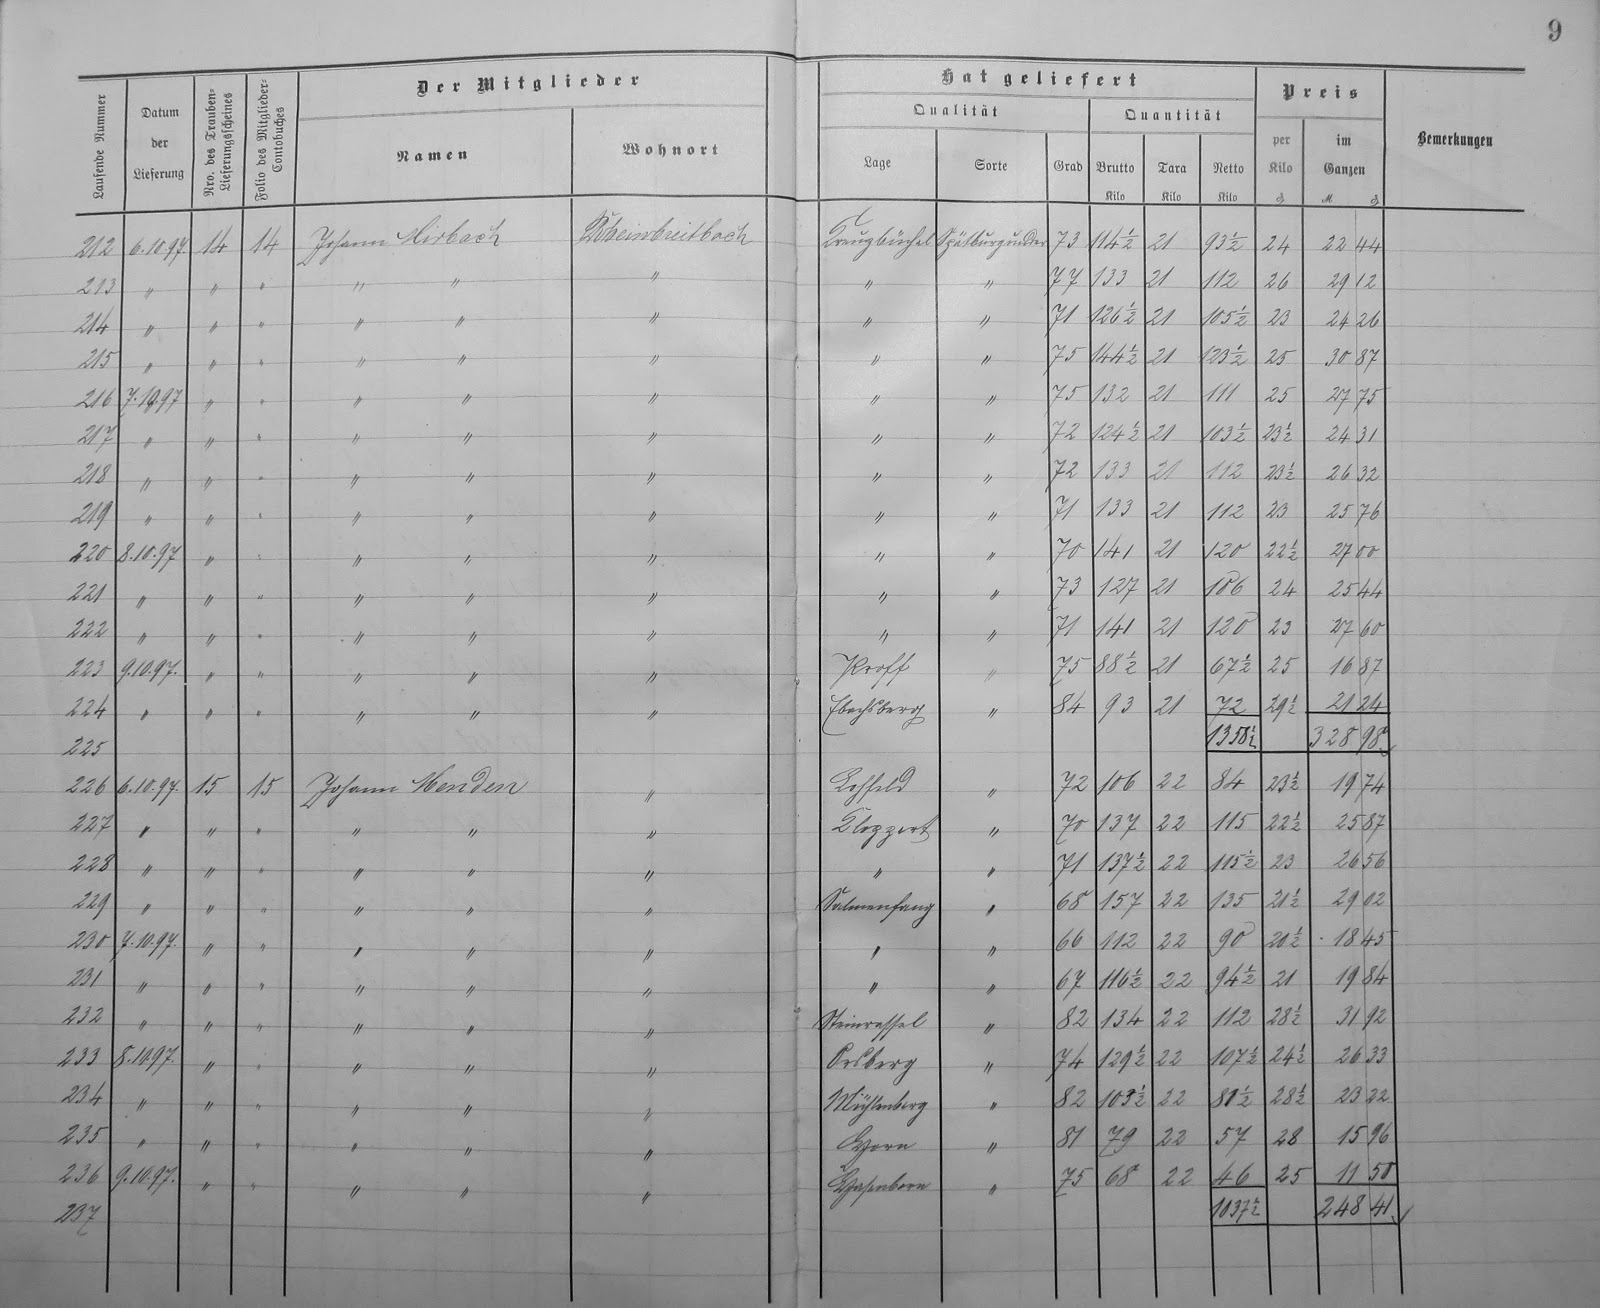 9
Der Mitglieder Hat geliefert Preis
Laufende Nummer Datum der Lieferung Nro. des Trauben-Lieferungsscheines Folio des Mitglieder-Contobuches Namen Wohnort Qualität Quantität per Kilo im Ganzen Bemerkungen
Lage Sorte Grad Brutto Tara Netto
Kilo Kilo Kilo ₰ M ₰
212 6.10.97. 14 14 Johann Mirbach Rheinbreitbach Kreuzbüchel Spätburgunder 73 114½ 21 93½ 24 22 44
213 " " " " " " " " 77 133 21 112 26 29 12
214 " " " " " " " " 71 126½ 21 105½ 23 24 26
215 " " " " " " " " 75 144½ 21 123½ 25 30 87
216 7.10.97 " " " " " " " 75 132 21 111 25 27 75
217 " " " " " " " " 72 124½ 21 103½ 23½ 24 31
218 " " " " " " " " 72 133 21 112 23½ 26 32
219 " " " " " " " " 71 133 21 112 23 25 76
220 8.10.97 " " " " " " " 70 141 21 120 22½ 27 00
221 " " " " " " " " 73 127 21 106 24 25 44
222 " " " " " " " " 71 141 21 120 23 27 60
223 9.10.97. " " " " " Kroff " 75 88½ 21 67½ 25 16 87
224 " " " " " " " 84 93 21 72 29½ 21 24
225 1358½ 328 98
226 6.10.97. 15 15 Johann Menden " Lohfeld " 72 106 22 84 23½ 19 74
227 " " " " " " Kloppert " 70 137 22 115 22½ 25 87
228 " " " " " " " " 71 137½ 22 115½ 23 26 56
229 " " " " " " Salmenfang " 68 157 22 135 21½ 29 02
230 7.10.97. " " " " " " " 66 112 22 90 20½ 18 45
231 " " " " " " " " 67 116½ 22 94½ 21 19 84
232 " " " " " " " 82 134 22 112 28½ 31 92
233 8.10.97. " " " " " Orsberg " 74 129½ 22 107½ 24½ 26 33
234 " " " " " " Mühlenberg " 82 103½ 22 81½ 28½ 23 22
235 " " " " " " Horn " 81 79 22 57 28 15 96
236 9.10.97. " " " " " Hasenborn " 75 68 22 46 25 11 50
237 1037½ 248 41